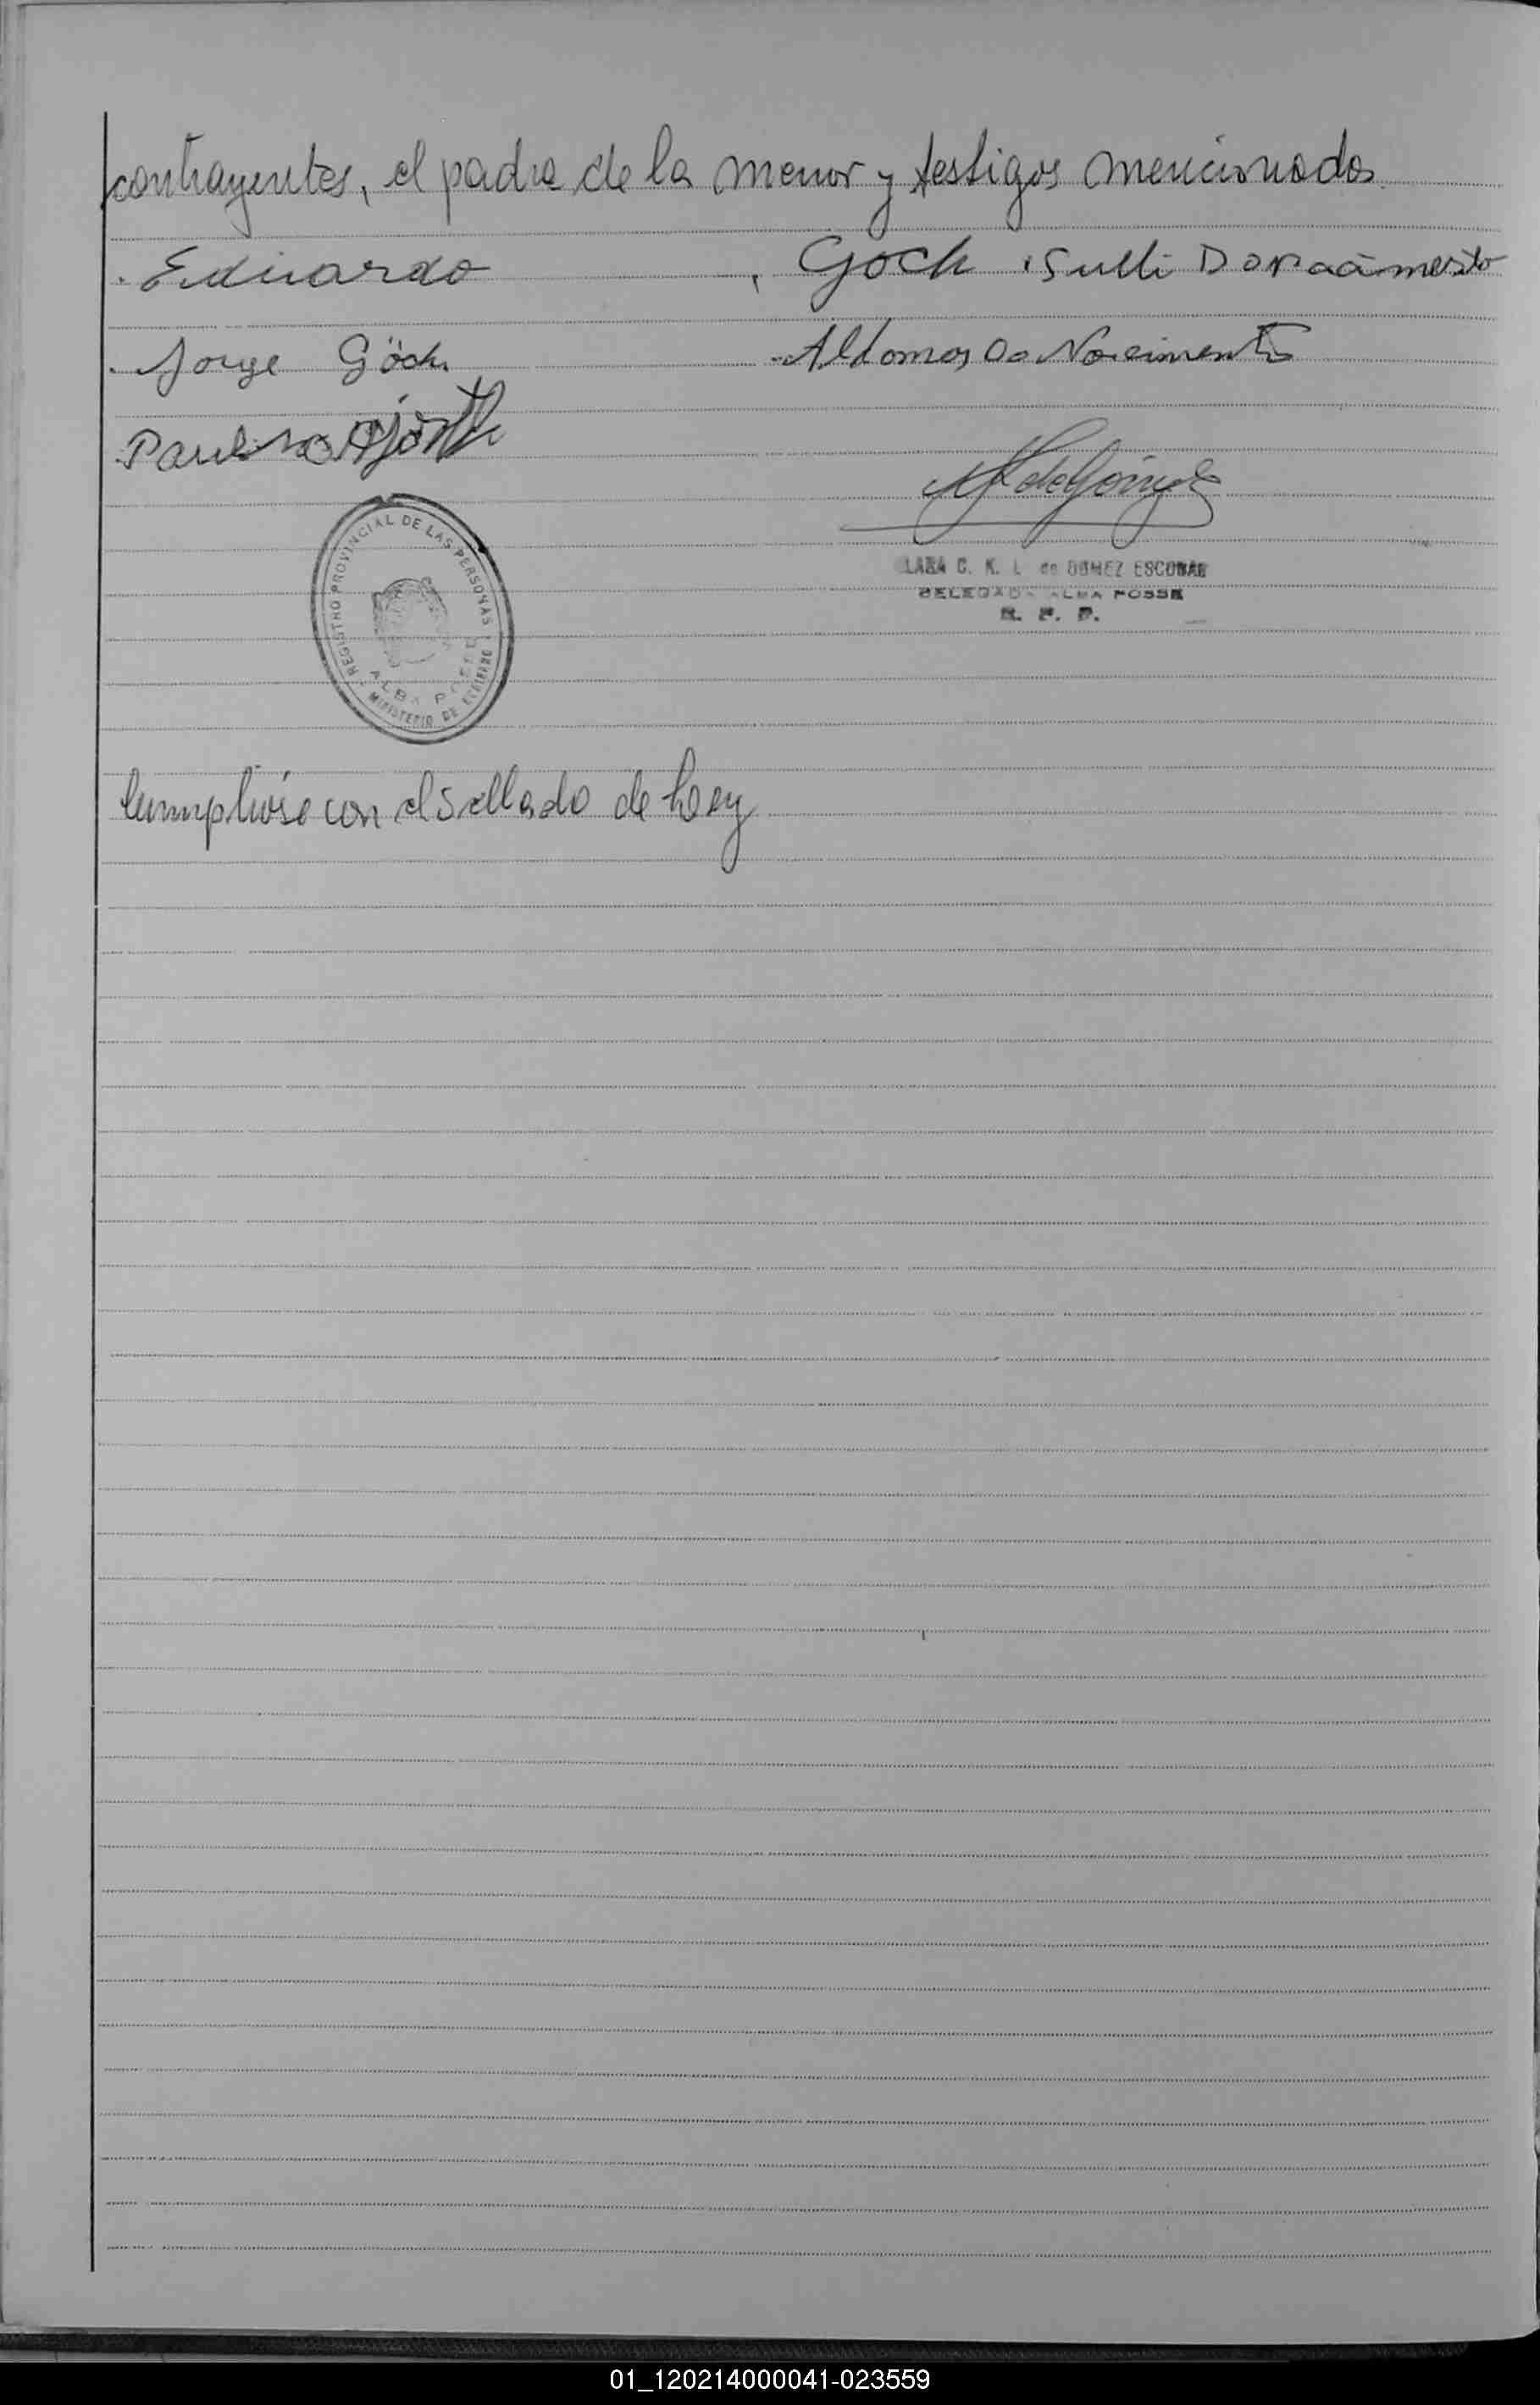 contrayentes, el padre de la menor y testigos mencionados
Eduardo Goch Sulli
Jorge Göch
Aldomos do Nascimento
Paulino
LARA C. K. L de GOMEZ ESCOBAR
DELEGADA ALBA POSSE
R. P. P.
REGISTRO PROVINCIAL DE LAS PERSONAS
ALBA POSSE
MINISTERIO DE GOBIERNO
Cumplióse con el sellado de Ley
01_120214000041-023559